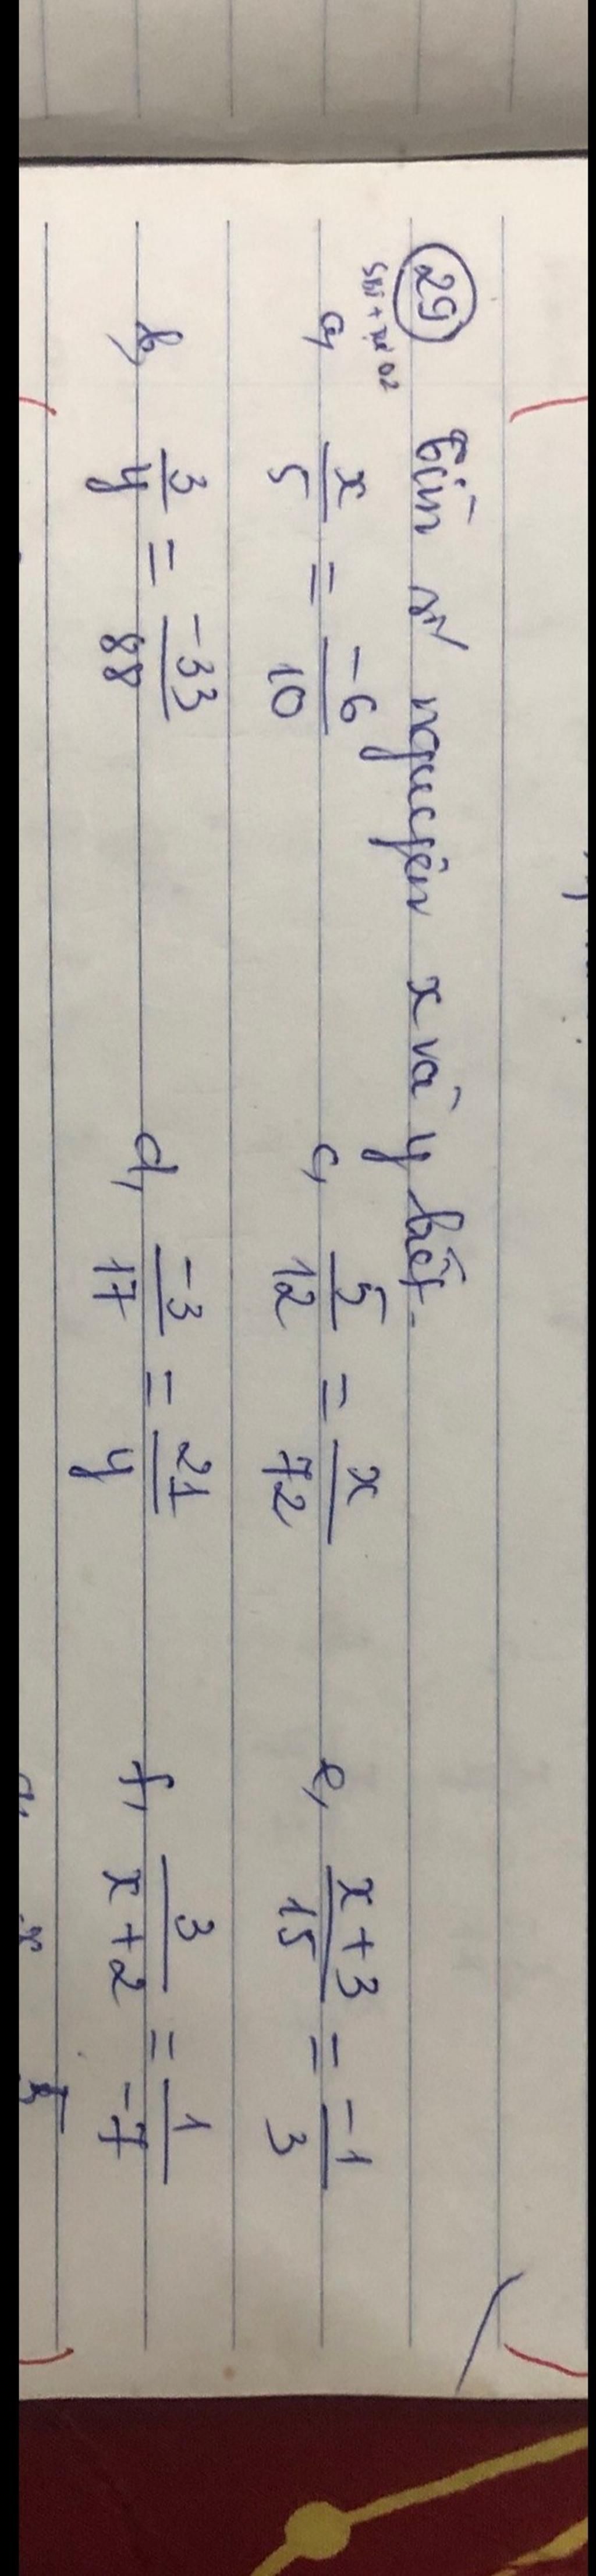 29 Tìm số nguyên x và y biết.
a, x/5 = -6/10 c, 5/12 = x/72 e, x+3/15 = -1/3
b, 3/y = -33/88 d, -3/17 = 21/y f, 3/x+2 = 1/-7